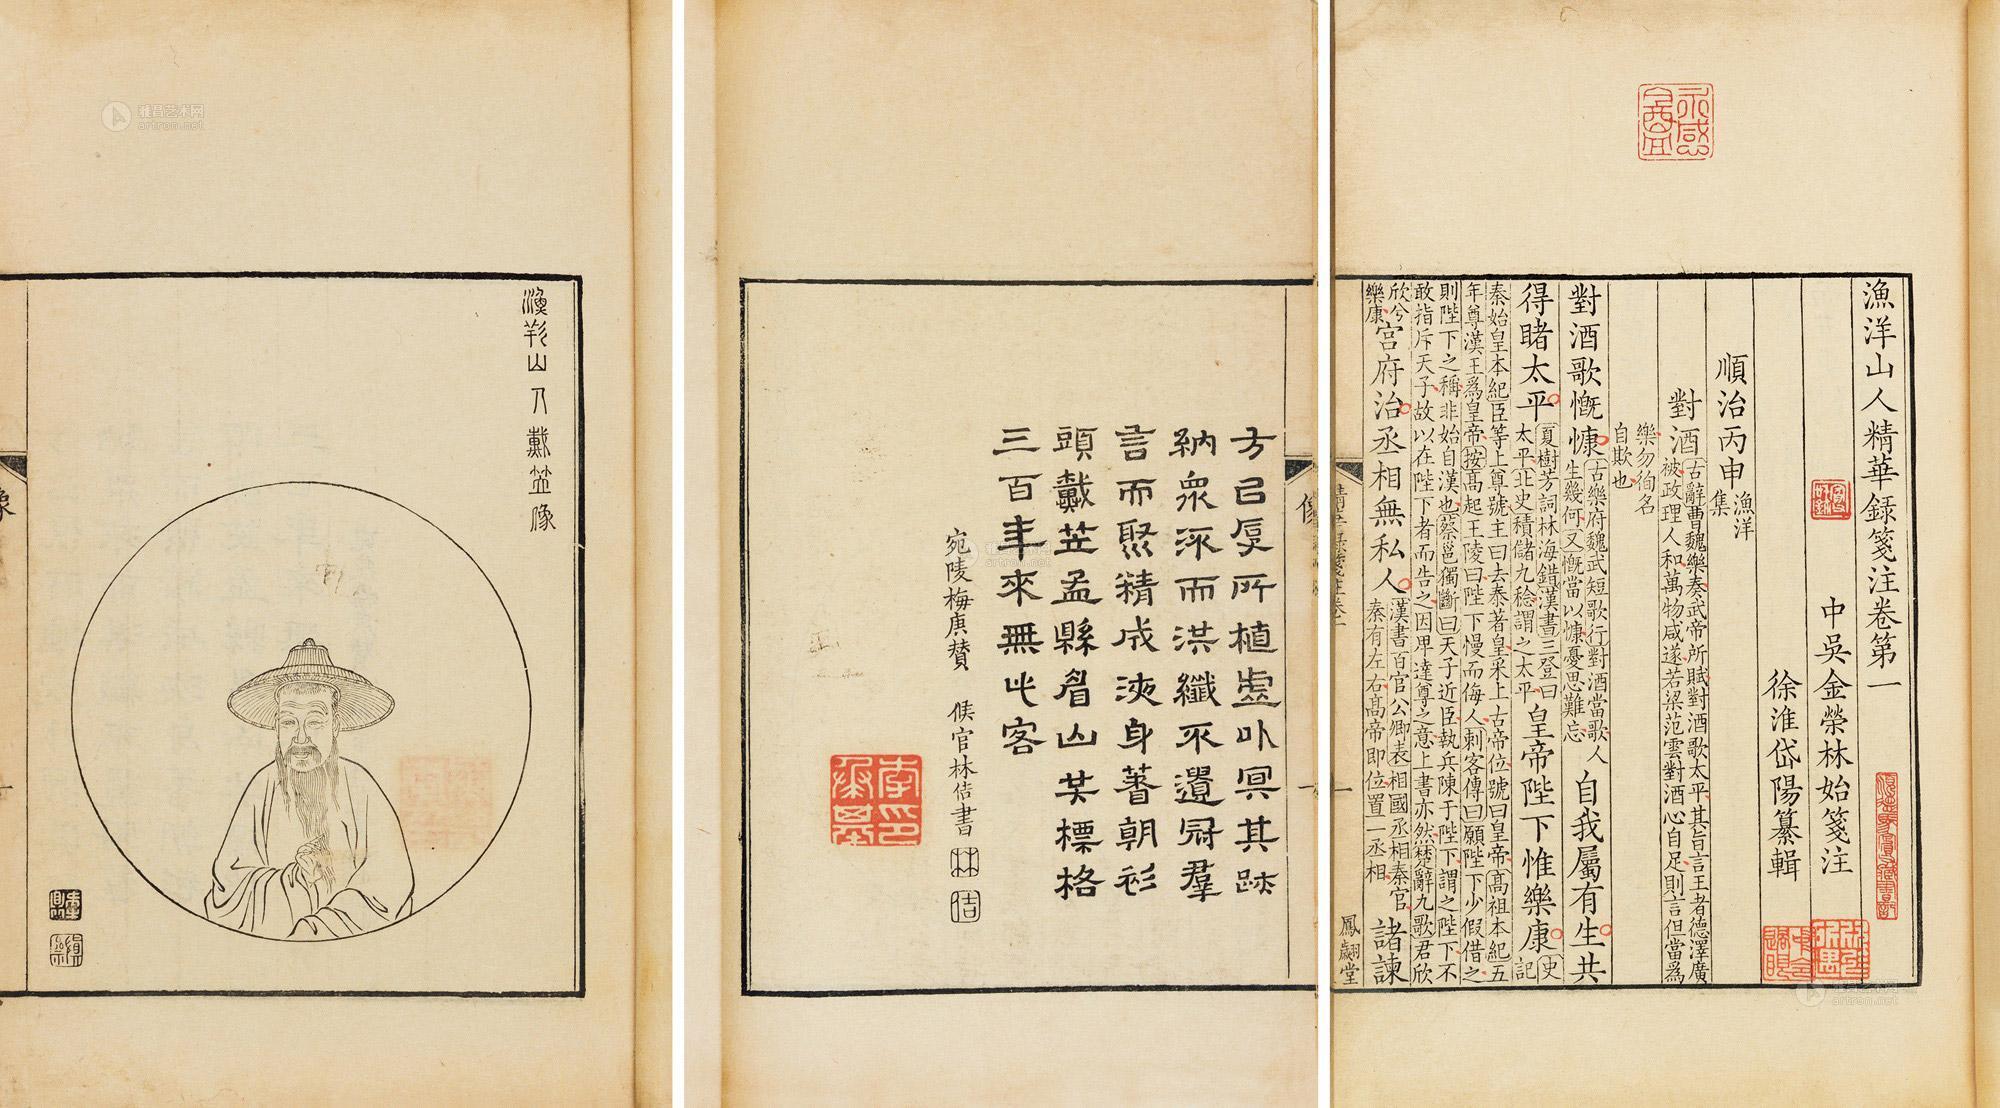 漁洋山人戴笠像
方㠯厚所植虛以冥其跡
納衆流而洪纖不遺冠羣
言而聚精成液身著朝衫
頭戴笠孟縣眉山其標格
三百年來無此客
宛陵梅庚贊 侯官林佶書
林
佶
漁洋山人精華録箋注卷第一
中吳金榮林始箋注
徐淮岱陽纂輯
順治丙申 漁洋集
對酒 古辭曹魏樂奏武帝所賦對酒歌太平其旨言王者德澤廣
被政理人和萬物咸遂若梁范雲對酒心自足則言但當爲
樂勿徇名
自欺也
對酒歌慨慷 古樂府魏武短歌行對酒當歌人生幾何又慨當以慷憂思難忘 自我屬有生共
得睹太平 夏樹芳詞林海錯漢書三登曰太平北史積儲九稔謂之太平 皇帝陛下惟樂康 史記
秦始皇本紀臣等上尊號主曰去泰著皇采上古帝位號曰皇帝高祖本紀五
年尊漢王爲皇帝按高起王陵曰陛下慢而侮人刺客傳曰願陛下少假借之
則陛下之稱非始自漢也蔡邕獨斷曰天子近臣執兵陳于陛下謂之陛下不
敢指斥天子故以在陛下者而告之因卑達尊之意上書亦然楚辭九歌君欣
欣兮樂康 宮府治丞相無私人 漢書百官公卿表相國丞相秦官秦有左右高帝即位置一丞相 諸諫
鳳翽堂
雅昌艺术网
artron.net